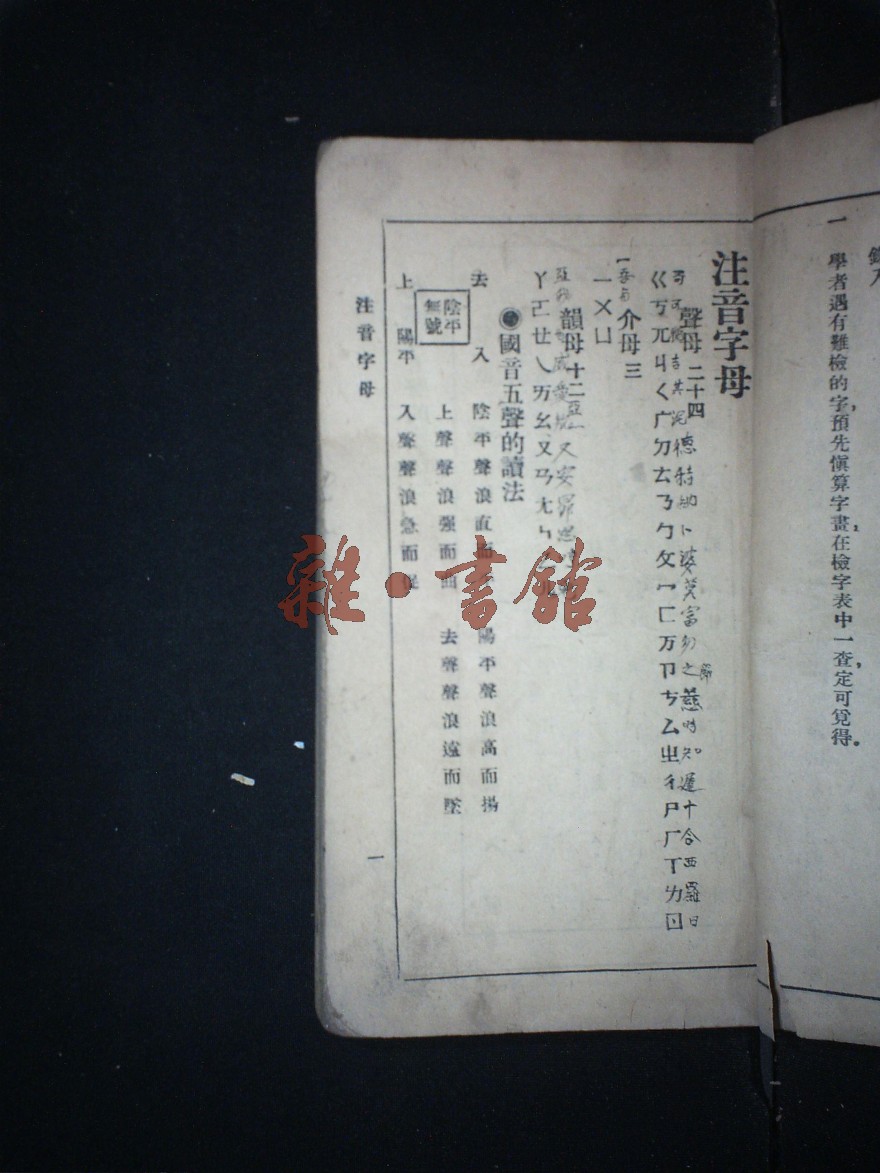 一　學者遇有難檢的字，預先愼算字畫，在檢字表中一查，定可覓得。
注音字母
聲母 二十四
德特
卜婆
富
之慈
知遲十合西羅日
ㄍㄎㄫㄐㄑㄬㄉㄊㄋㄅㄆㄇㄈㄪㄗㄘㄙㄓㄔㄕㄏㄒㄌㄖ
介母 三
ㄧㄨㄩ
韻母 十二
又安
ㄚㄛㄝㄟㄞㄠㄡㄢㄤㄣ
國音五聲的讀法
陰平聲聲浪直而　陽平聲浪高而揚
上聲聲浪强而　去聲聲浪遠而墜
入聲聲浪急而促
去　入
陰平無號
上　陽平
注音字母
一
雜·書館